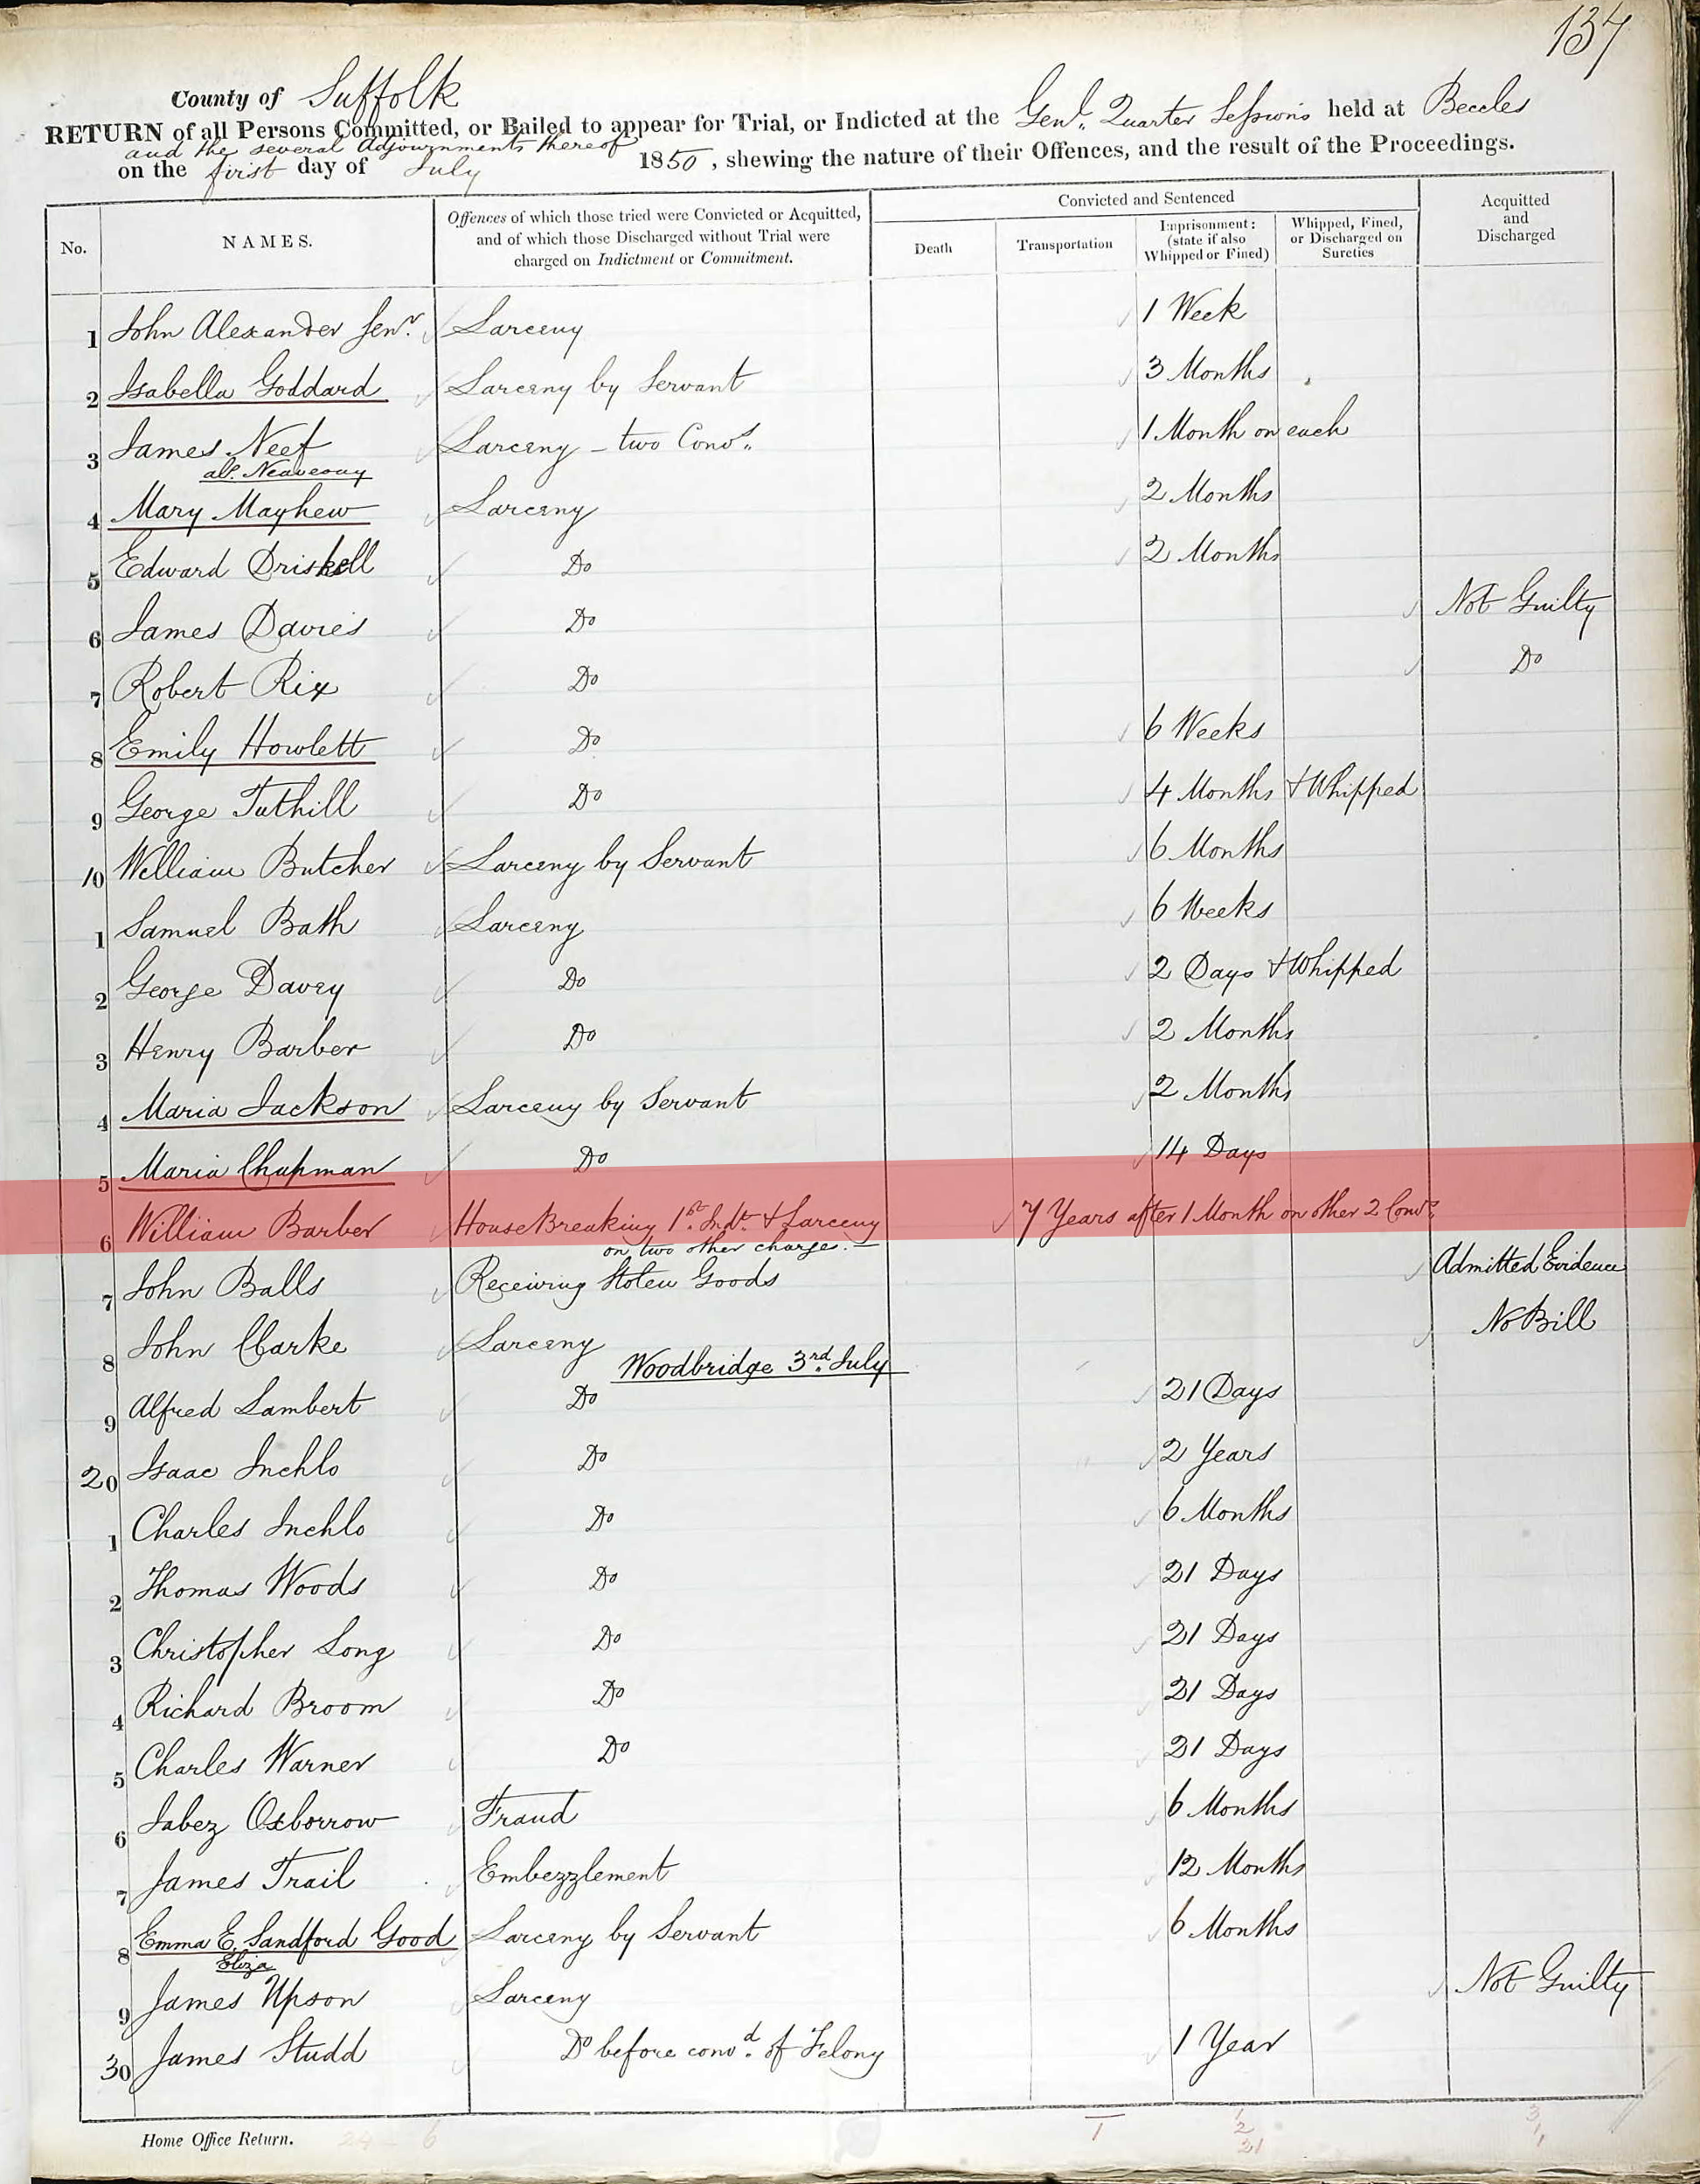 137
County of Suffolk
RETURN of all Persons Committed, or Bailed to appear for Trial, or Indicted at the Genl. Quarter Sessions held at Beccles
and the several Adjournments thereof
on the first day of July 1850, shewing the nature of their Offences, and the result of the Proceedings.
No. NAMES. Offences of which those tried were Convicted or Acquitted, and of which those Discharged without Trial were charged on Indictment or Commitment. Convicted and Sentenced Acquitted and Discharged
Death Transportation Imprisonment: (state if also Whipped or Fined) Whipped, Fined, or Discharged on Sureties
1 John Alexander Senr. Larceny 1 Week
2 Isabella Goddard Larceny by Servant 3 Months
3 James Neef Larceny - two Convs. 1 Month on each
als. Neaveouy
4 Mary Mayhew Larceny 2 Months
5 Edward Driskell Do 2 Months
6 James Davies Do Not Guilty
7 Robert Rix Do Do
8 Emily Howlett Do 6 Weeks
9 George Tuthill Do 4 Months & Whipped
10 William Butcher Larceny by Servant 6 Months
1 Samuel Bath Larceny 6 Weeks
2 George Davey Do 2 Days & Whipped
3 Henry Barber Do 2 Months
4 Maria Jackson Larceny by Servant 2 Months
5 Maria Chapman Do 14 Days
6 William Barber HouseBreaking 1st. Indt. & Larceny 7 Years after 1 Month on other 2 Convs.
on two other charge. —
7 John Balls Receiving Stolen Goods Admitted Evidence
8 John Clarke Larceny No Bill
Woodbridge 3rd. July
9 Alfred Lambert Do 21 Days
20 Isaac Inchlo Do 2 Years
1 Charles Inchlo Do 6 Months
2 Thomas Woods Do 21 Days
3 Christopher Long Do 21 Days
4 Richard Broom Do 21 Days
5 Charles Warner Do 21 Days
6 Jabez Oxborrow Fraud 6 Months
7 James Trail Embezzlement 12 Months
8 Emma E. Sandford Good Larceny by Servant 6 Months
Eliza
9 James Upson Larceny Not Guilty
30 James Studd Do before convd. of Felony 1 Year
Home Office Return. 24 - 6 1 1 2 21 3 1 1